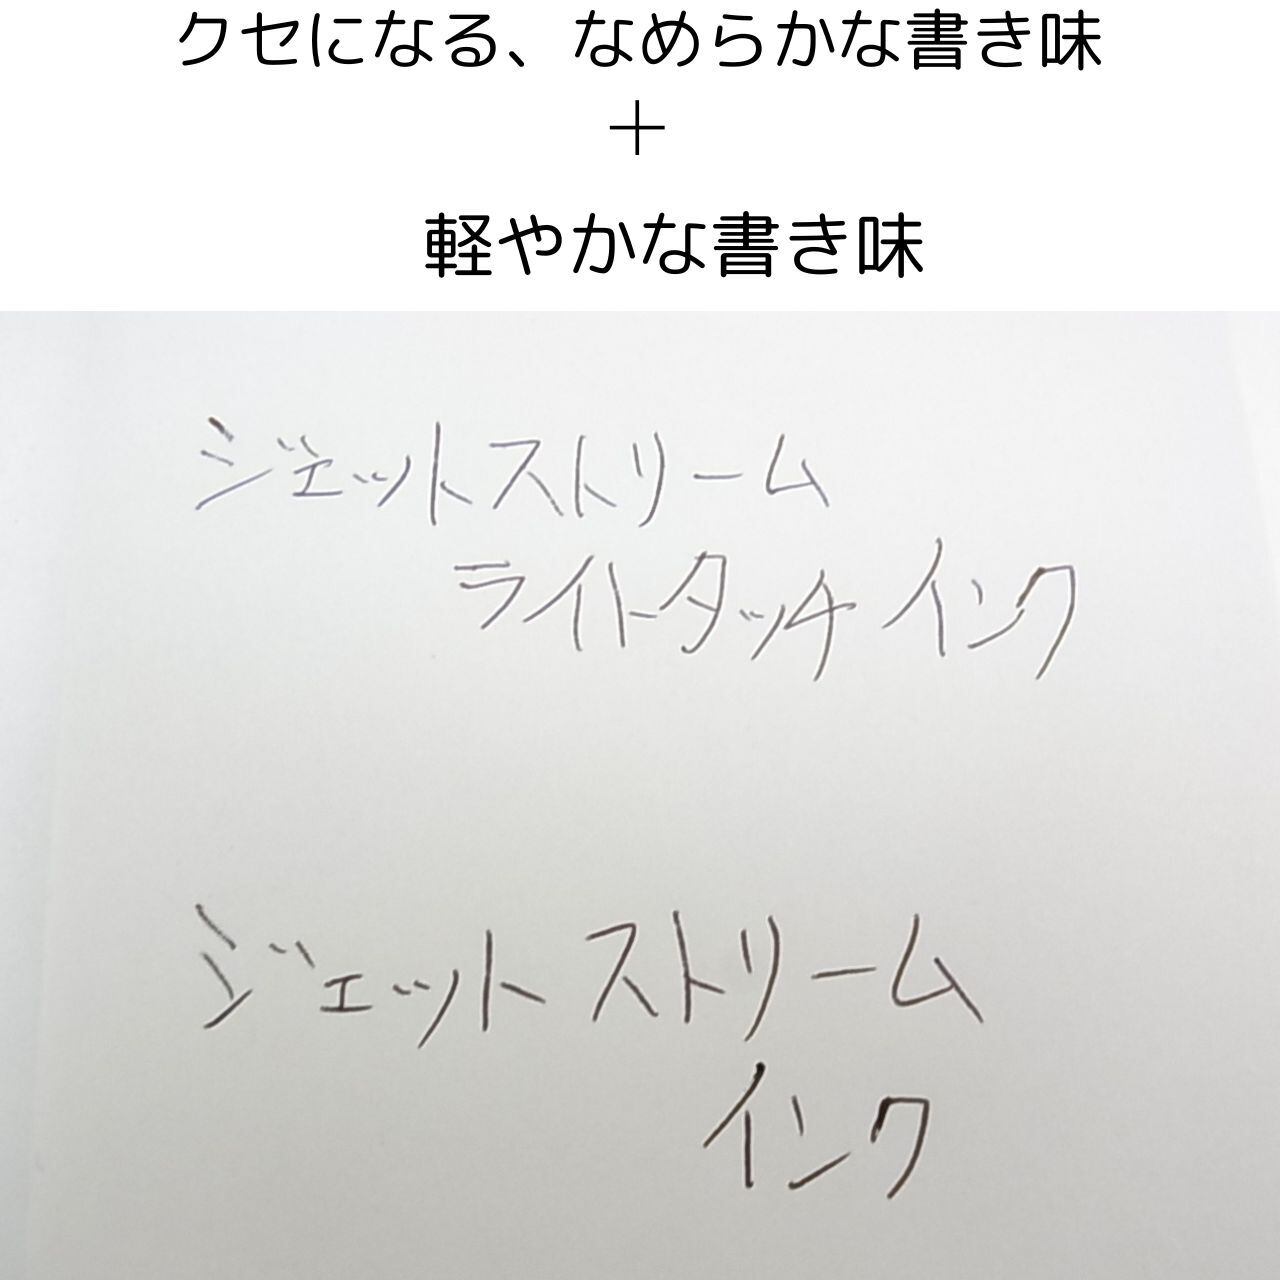 クセになる、なめらかな書き味
＋
軽やかな書き味
ジェットストリーム
ライトタッチインク
ジェットストリーム
インク